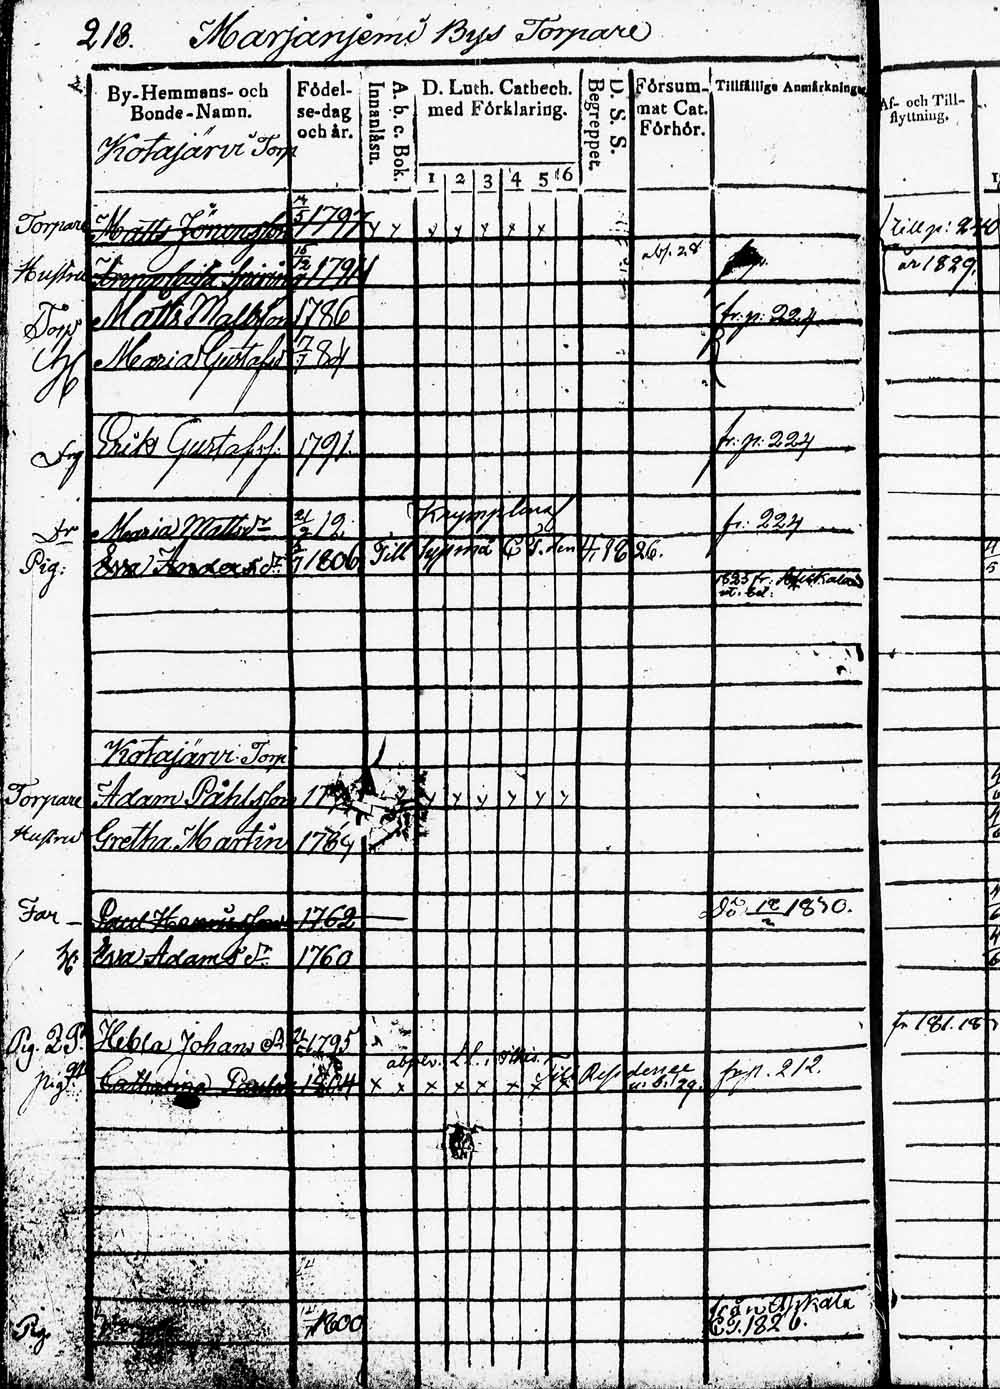 218. Marjanjemi Bys Torpare
By-Hemmans- och Bonde-Namn.
Födel-se-dag och år.
A. b. c. Bok. Innanläsn.
D. Luth. Cathech. med Förklaring.
1 2 3 4 5 6
D. S. S. Begreppet.
Försum-mat Cat. Förhör.
Tillfällige Anmärkningar
Af- och Till-flyttning.
Kotajärvi Torp
Torpare Matts Jöransson 7/5 1797 x x x x x x x till p: 240
abs. 28
Hustru 15/12 1794 år 1829.
Torp Matts Mattsson 1786 fr. p: 224
H Maria Gustafsd 7/7 84
Drg Erik Gustafss. 1791. fr. p: 224
Krympling
Dr Maria Mattsdr 21/2 12. fr: 224
Pig: Eva Andersdr 1806 Till 1826.
1825 fr:
Kotajärvi Torp
Torpare Adam Påhlsson 17 x x x x x x
Hustru Gretha Martin 1764
Far Paul Henricsson 1762 Dö 1830.
H. Eva Adamsdr 1760
Pig. Hebla Johansd 1795 fr 181.
Pig. Catharina Paulsd 1804 x x x x x x x x fr p. 212.
Pig. 1800 från
1826.